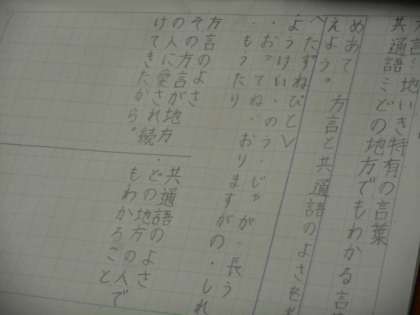 方言…地いき特有の言葉
共通語…どの地方でもわかる言
めあて
方言と共通語のよさを
えよう。
へたずねびと＞
ようけい・のう・じゃが・長う
・おってね・おりますがの・しれ
・もうたり
方言のよさ
その方言が地方
の人に愛され続
けてきたから。
共通語のよさ
・どの地方の人で
もわかること